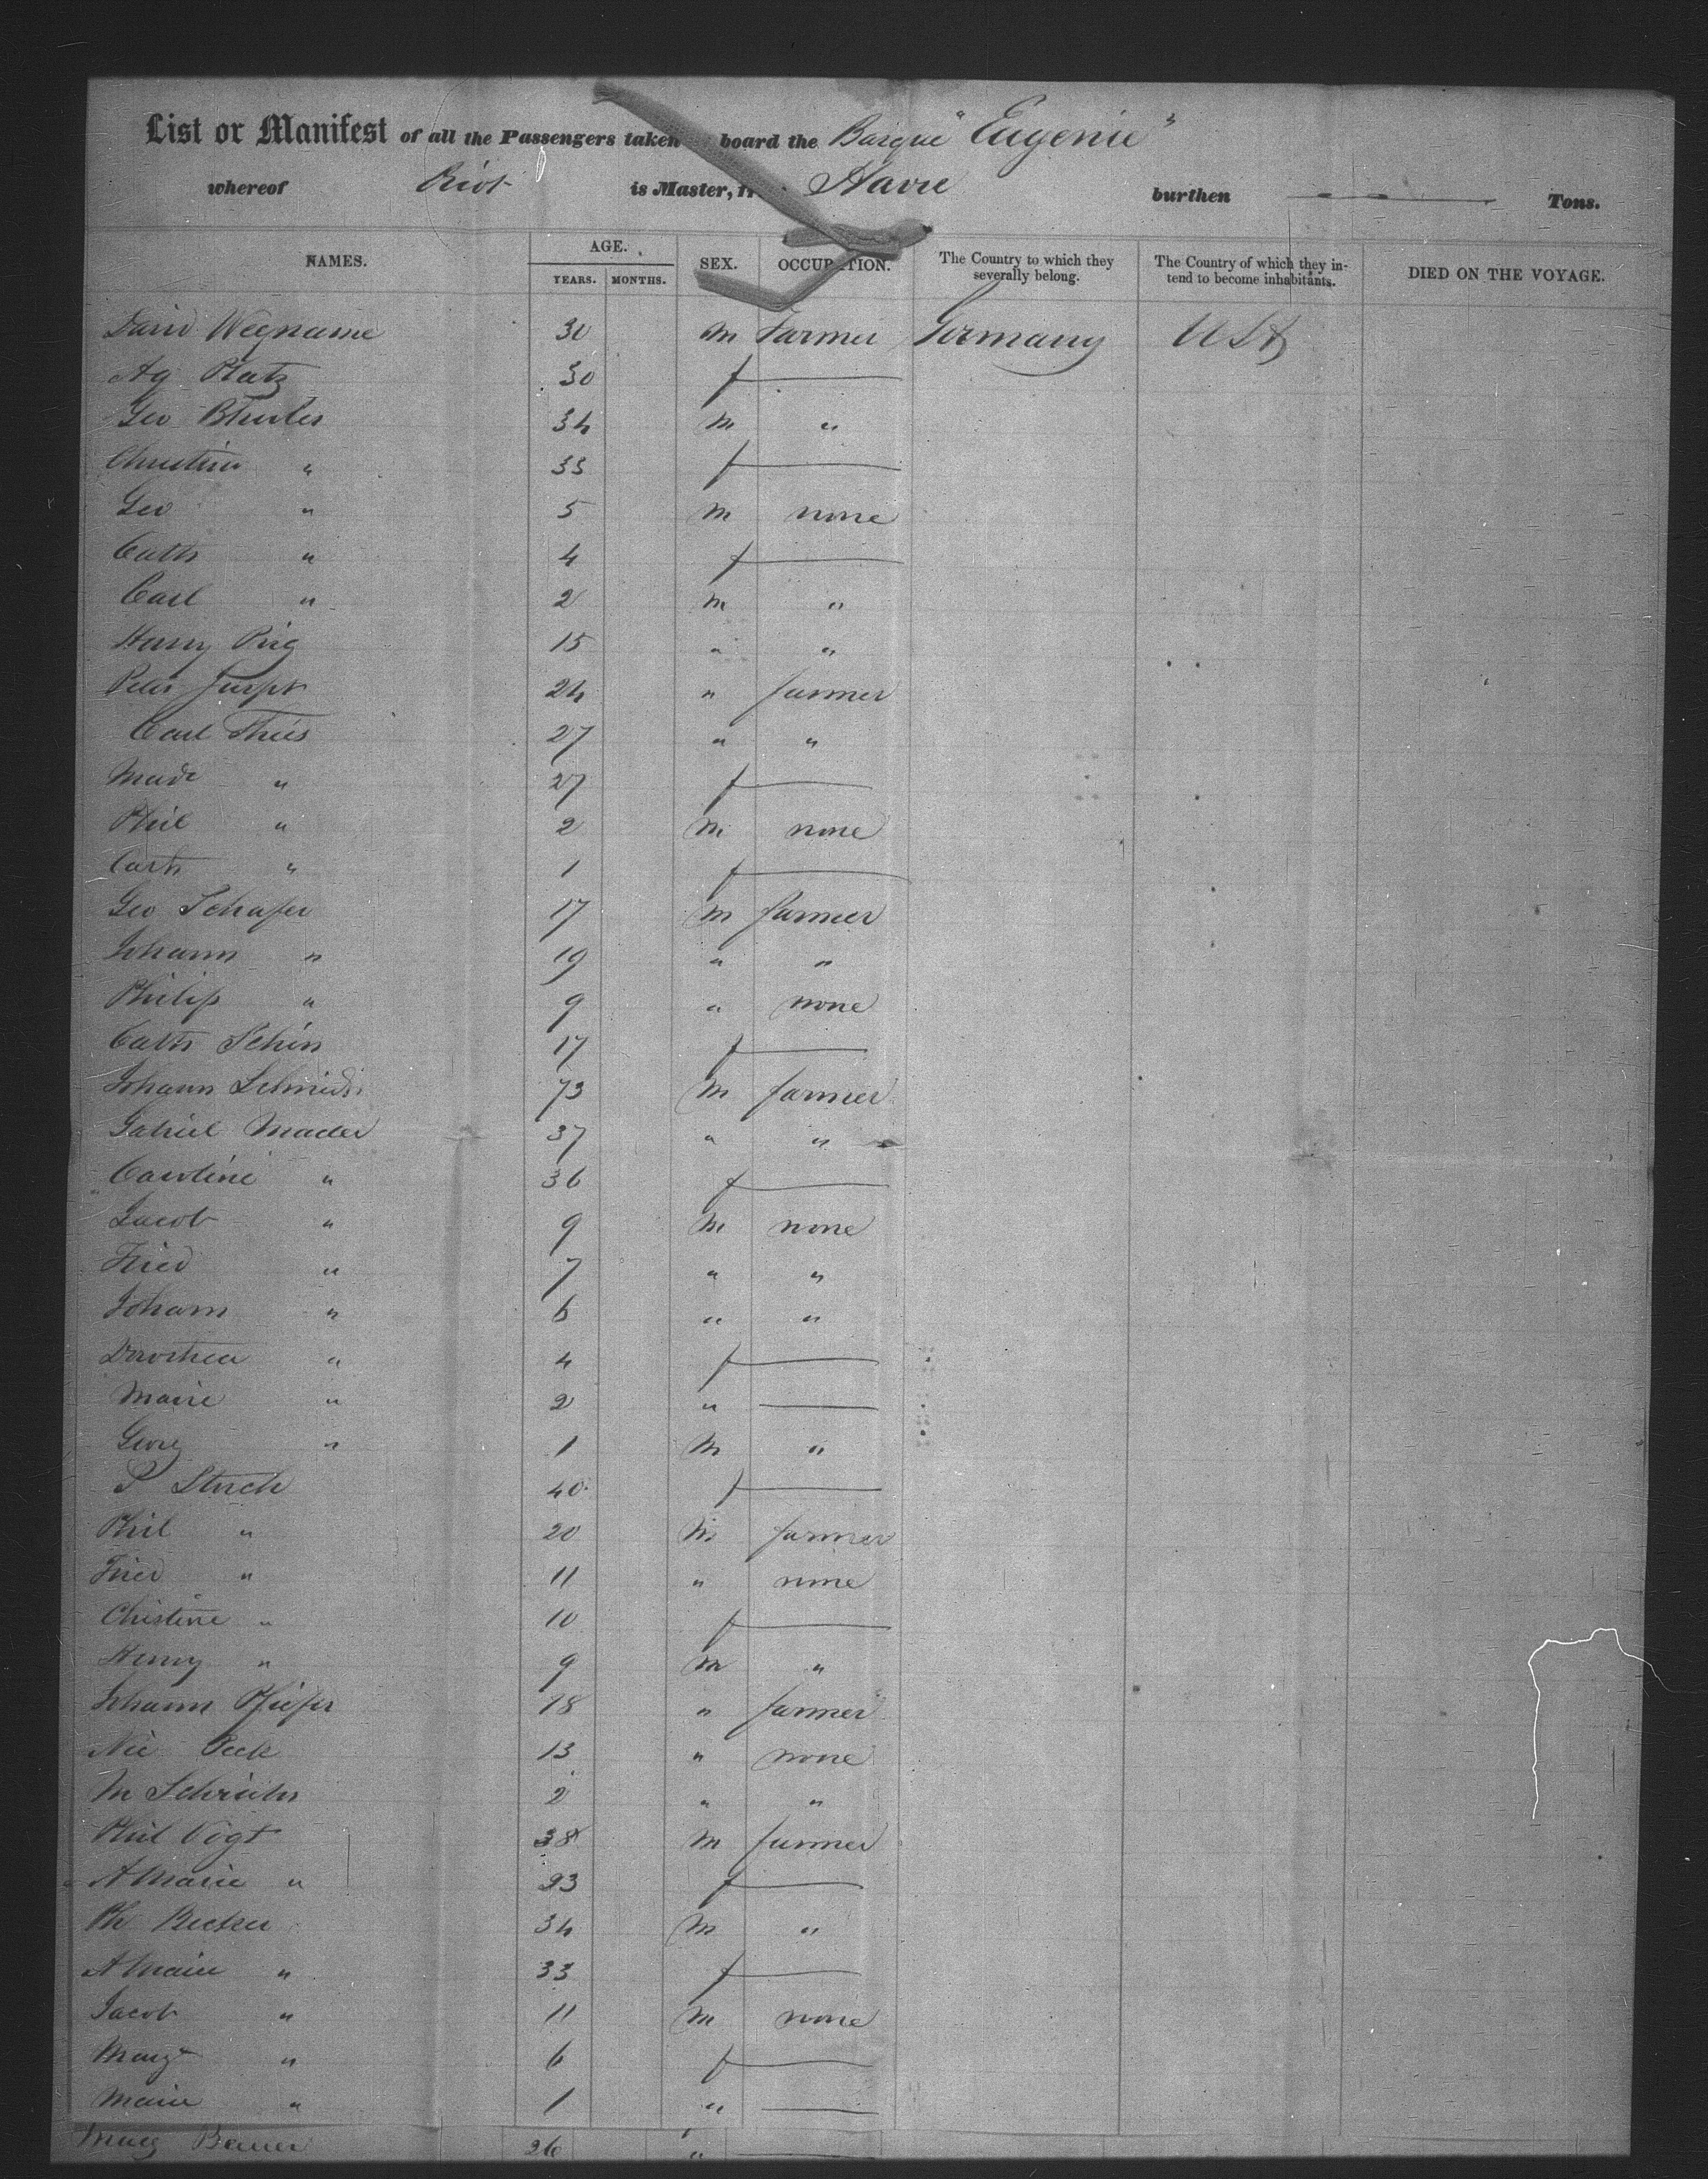 List or Manifest of all the Passengers taken board the Barque "Eugenie"
whereof Riot is Master, Havre burthen — — — Tons.
NAMES. AGE. YEARS. MONTHS. SEX. OCCUPATION. The Country to which they severally belong. The Country of which they intend to become inhabitants. DIED ON THE VOYAGE.
30 m Farmer Germany USA
Ag Platz 30 f
Geo 34 m "
Christina " 33 f
Geo " 5 m none
Cath " 4 f
Carl " 2 m "
Henry 15 " "
Peter 24 " farmer
Carl Theis 27 " "
" 27 f
Phil " 2 m none
Cath " 1 f
Geo Schafer 17 m farmer
Johann " 19 " "
Philip " 9 " none
Cath Schin 17 f
Johann Schmidt 73 m farmer
Mader 37 " "
Caroline " 36 f
Jacob " 9 m none
Fried " 7 " "
Johann " 6 " "
Dorothea " 4 f
Marie " 2 "
Georg " 1 m "
P 40 f
Phil " 20 m farmer
Fried " 11 " none
Christine " 10 f
Henry " 9 m "
Johann Pfiefer 18 " farmer
Nic 13 " none
M 2 " "
Phil Vogt 38 m farmer
A Marie " 33 f
Ph Becker 34 m "
A Marie " 33 f
Jacob " 11 m none
Margt " 6 f
Marie " 1 "
Marg Bauer 26 "